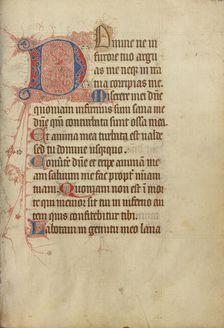 Domine ne in
furore tuo argu
as me neq; in ira
tua corripias me.
Miserere mei dn̄e
quoniam infirmus sum sana me
dn̄e qm̄ conturbata sunt ossa mea.
Et anima mea turbata est valde
sed tu domine usquequo
Conūte dn̄e et eripe animam me
am salvum me fac propt̄ mīam
tuam. Quoniam non est ī morte
qui memor sit tui in inferno au
tem quis confitebitur tibi.
Laboravi in gemitu meo lava